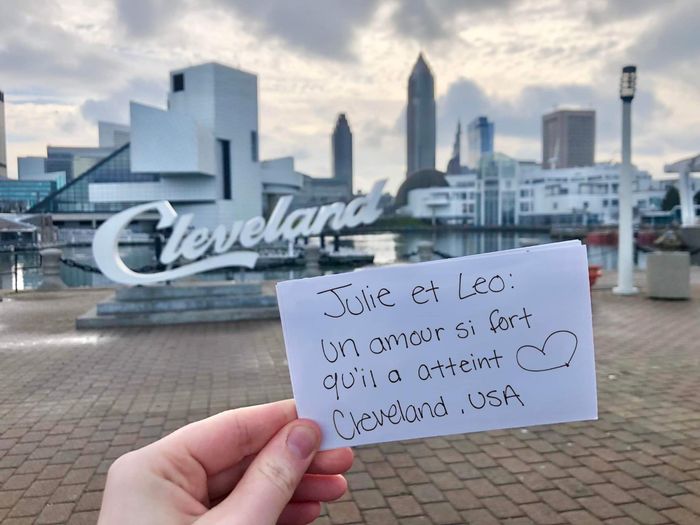 Cleveland
Julie et Leo:
un amour si fort
qu'il a atteint
Cleveland, USA